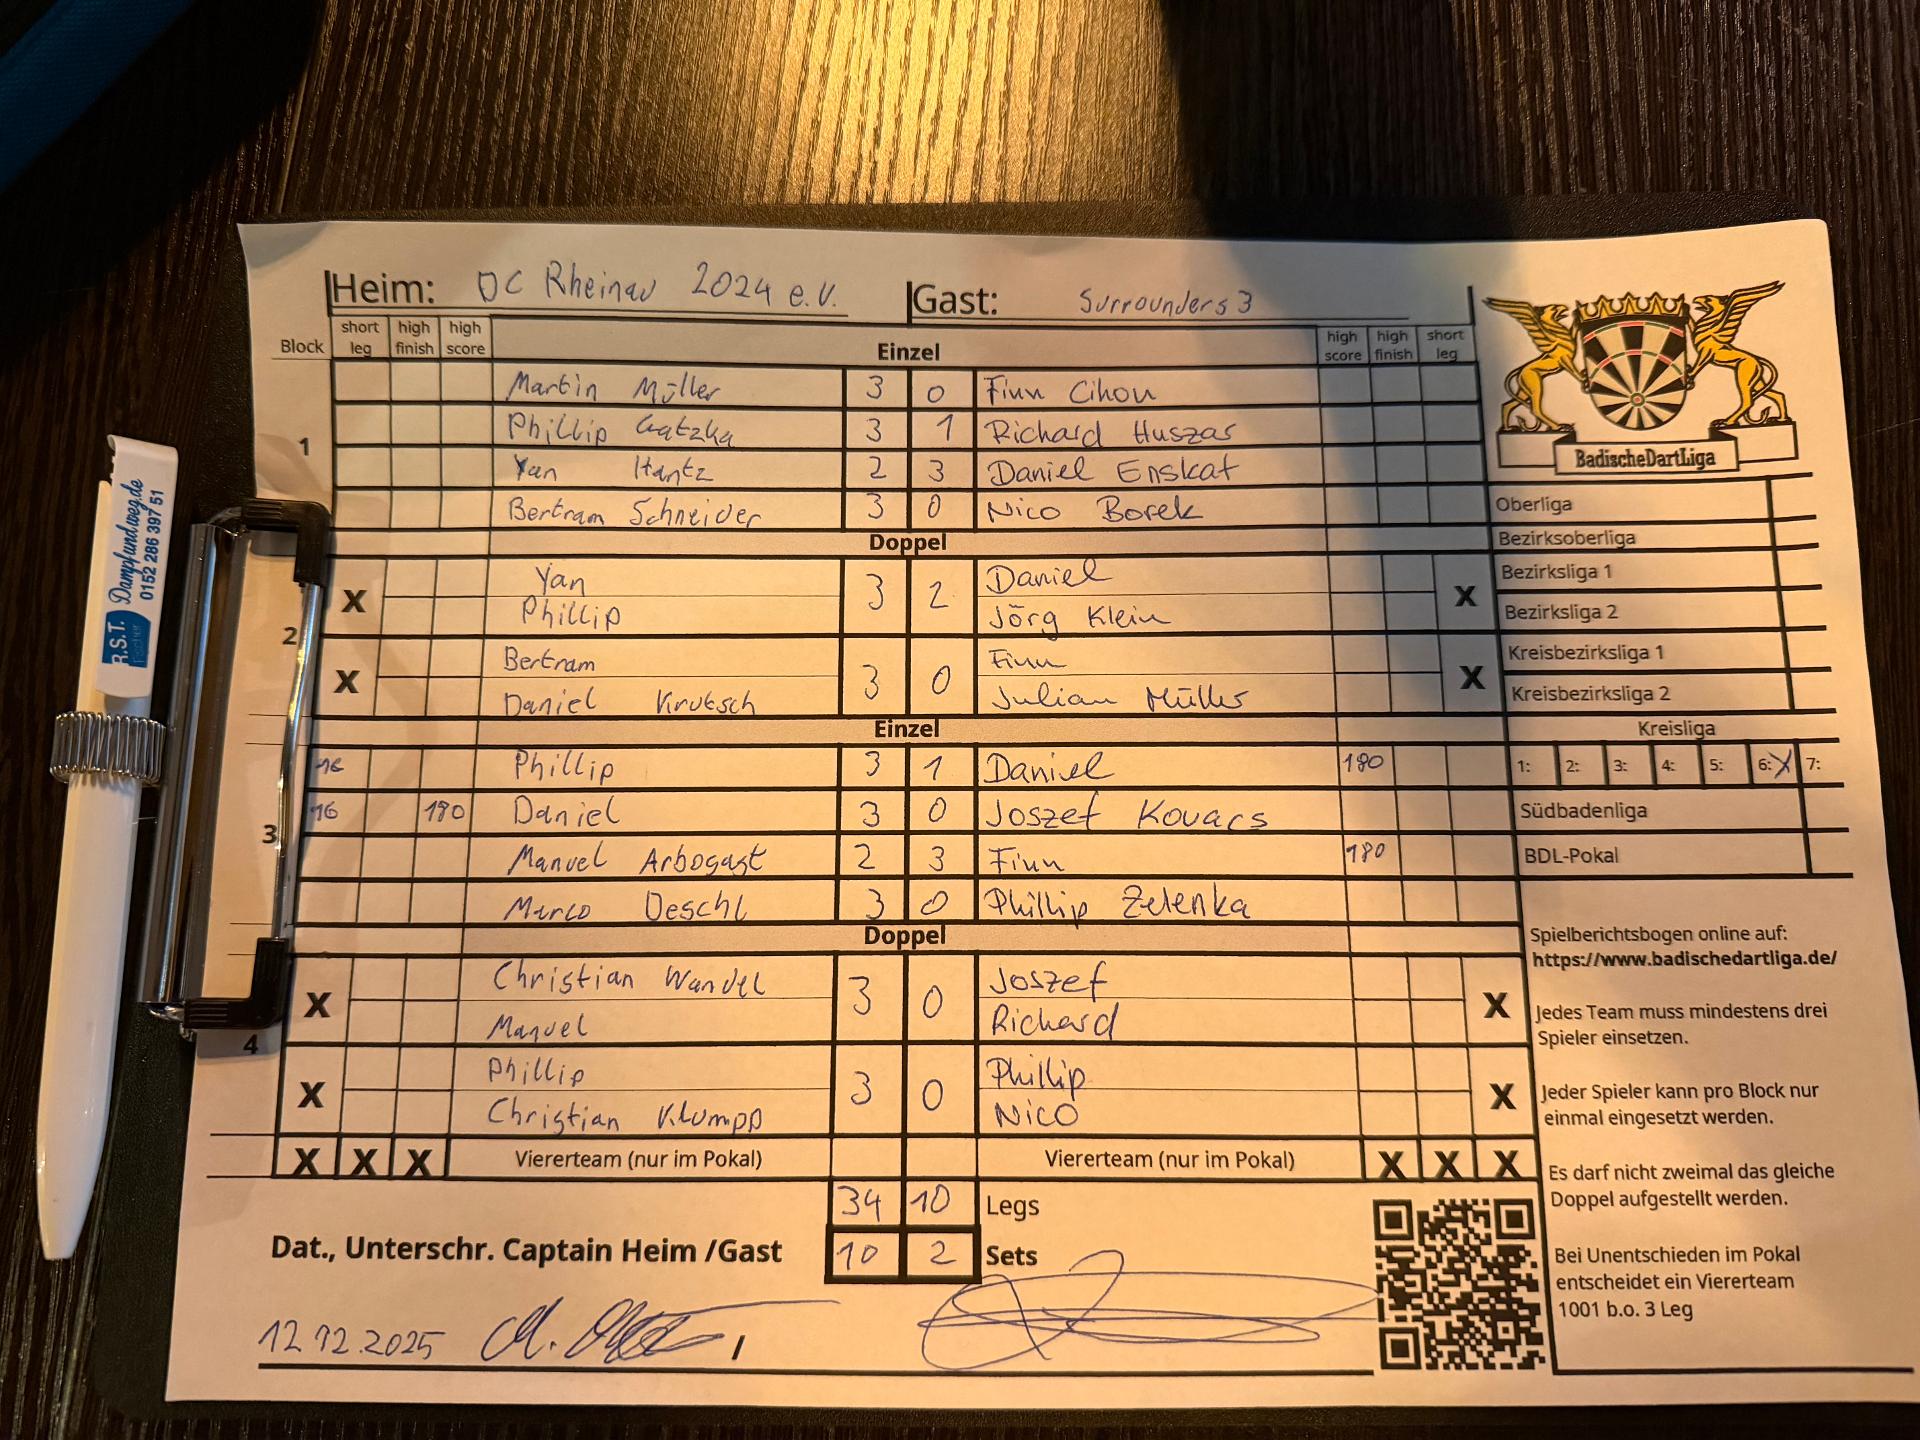 Heim: DC Rheinau 2024 e.V. Gast: Surrounders 3
Block short leg high finish high score Einzel high score high finish short leg
Martin Müller 3 0 Finn Cihon
1 Phillip Gatzka 3 1 Richard Huszar
Yan Hantz 2 3 Daniel Enskat
Bertram Schneider 3 0 Nico Borek
Doppel
2
X Yan 3 2 Daniel X
Phillip Jörg Klein
X Bertram 3 0 Finn X
Daniel Krutsch Julian Müller
Einzel
3
16 Phillip 3 1 Daniel 180
16 180 Daniel 3 0 Joszef Kovacs
Manuel Arbogast 2 3 Finn 180
Marco Oeschl 3 0 Phillip Zelenka
Doppel
4
X Christian Wandel 3 0 Joszef X
Manuel Richard
X Phillip 3 0 Phillip X
Christian Klumpp Nico
X X X Viererteam (nur im Pokal) Viererteam (nur im Pokal) X X X
34 10 Legs
Dat., Unterschr. Captain Heim /Gast 10 2 Sets
12.12.2025 /
BadischeDartLiga
Oberliga
Bezirksoberliga
Bezirksliga 1
Bezirksliga 2
Kreisbezirksliga 1
Kreisbezirksliga 2
Kreisliga
1: 2: 3: 4: 5: 6: X 7:
Südbadenliga
BDL-Pokal
Spielberichtsbogen online auf:
https://www.badischedartliga.de/
Jedes Team muss mindestens drei
Spieler einsetzen.
Jeder Spieler kann pro Block nur
einmal eingesetzt werden.
Es darf nicht zweimal das gleiche
Doppel aufgestellt werden.
Bei Unentschieden im Pokal
entscheidet ein Viererteam
1001 b.o. 3 Leg
R.S.T.
Dampfundweg.de
0152 286 397 51